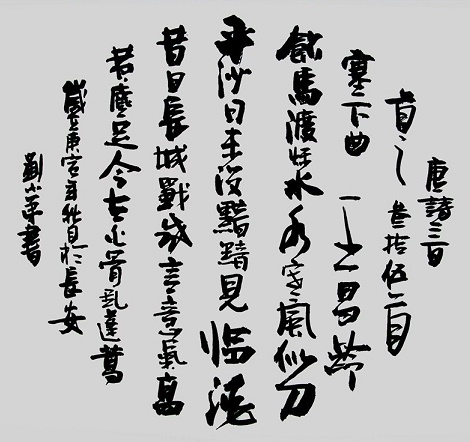 唐詩三百
首之叁拾伍首
塞下曲 王昌龄
飲馬渡秋水水寒風似刀
平沙日未没黯黯見临洮
昔日長城戰咸言意氣高
黄塵足今古白骨乱蓬蒿
歲在庚寅年秋月於長安
劉小書